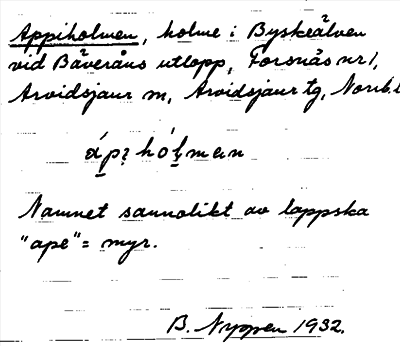 Appiholmen, holme i Byskeälven
vid Bäveråns utlopp, Forsnäs nr 1,
Arvidsjaur sn, Arvidsjaur tg, Norrb. l
áp̱ı hóḷmæn
Namnet sannolikt av lappska
"ape" = myr.
B. Nyppen 1932.